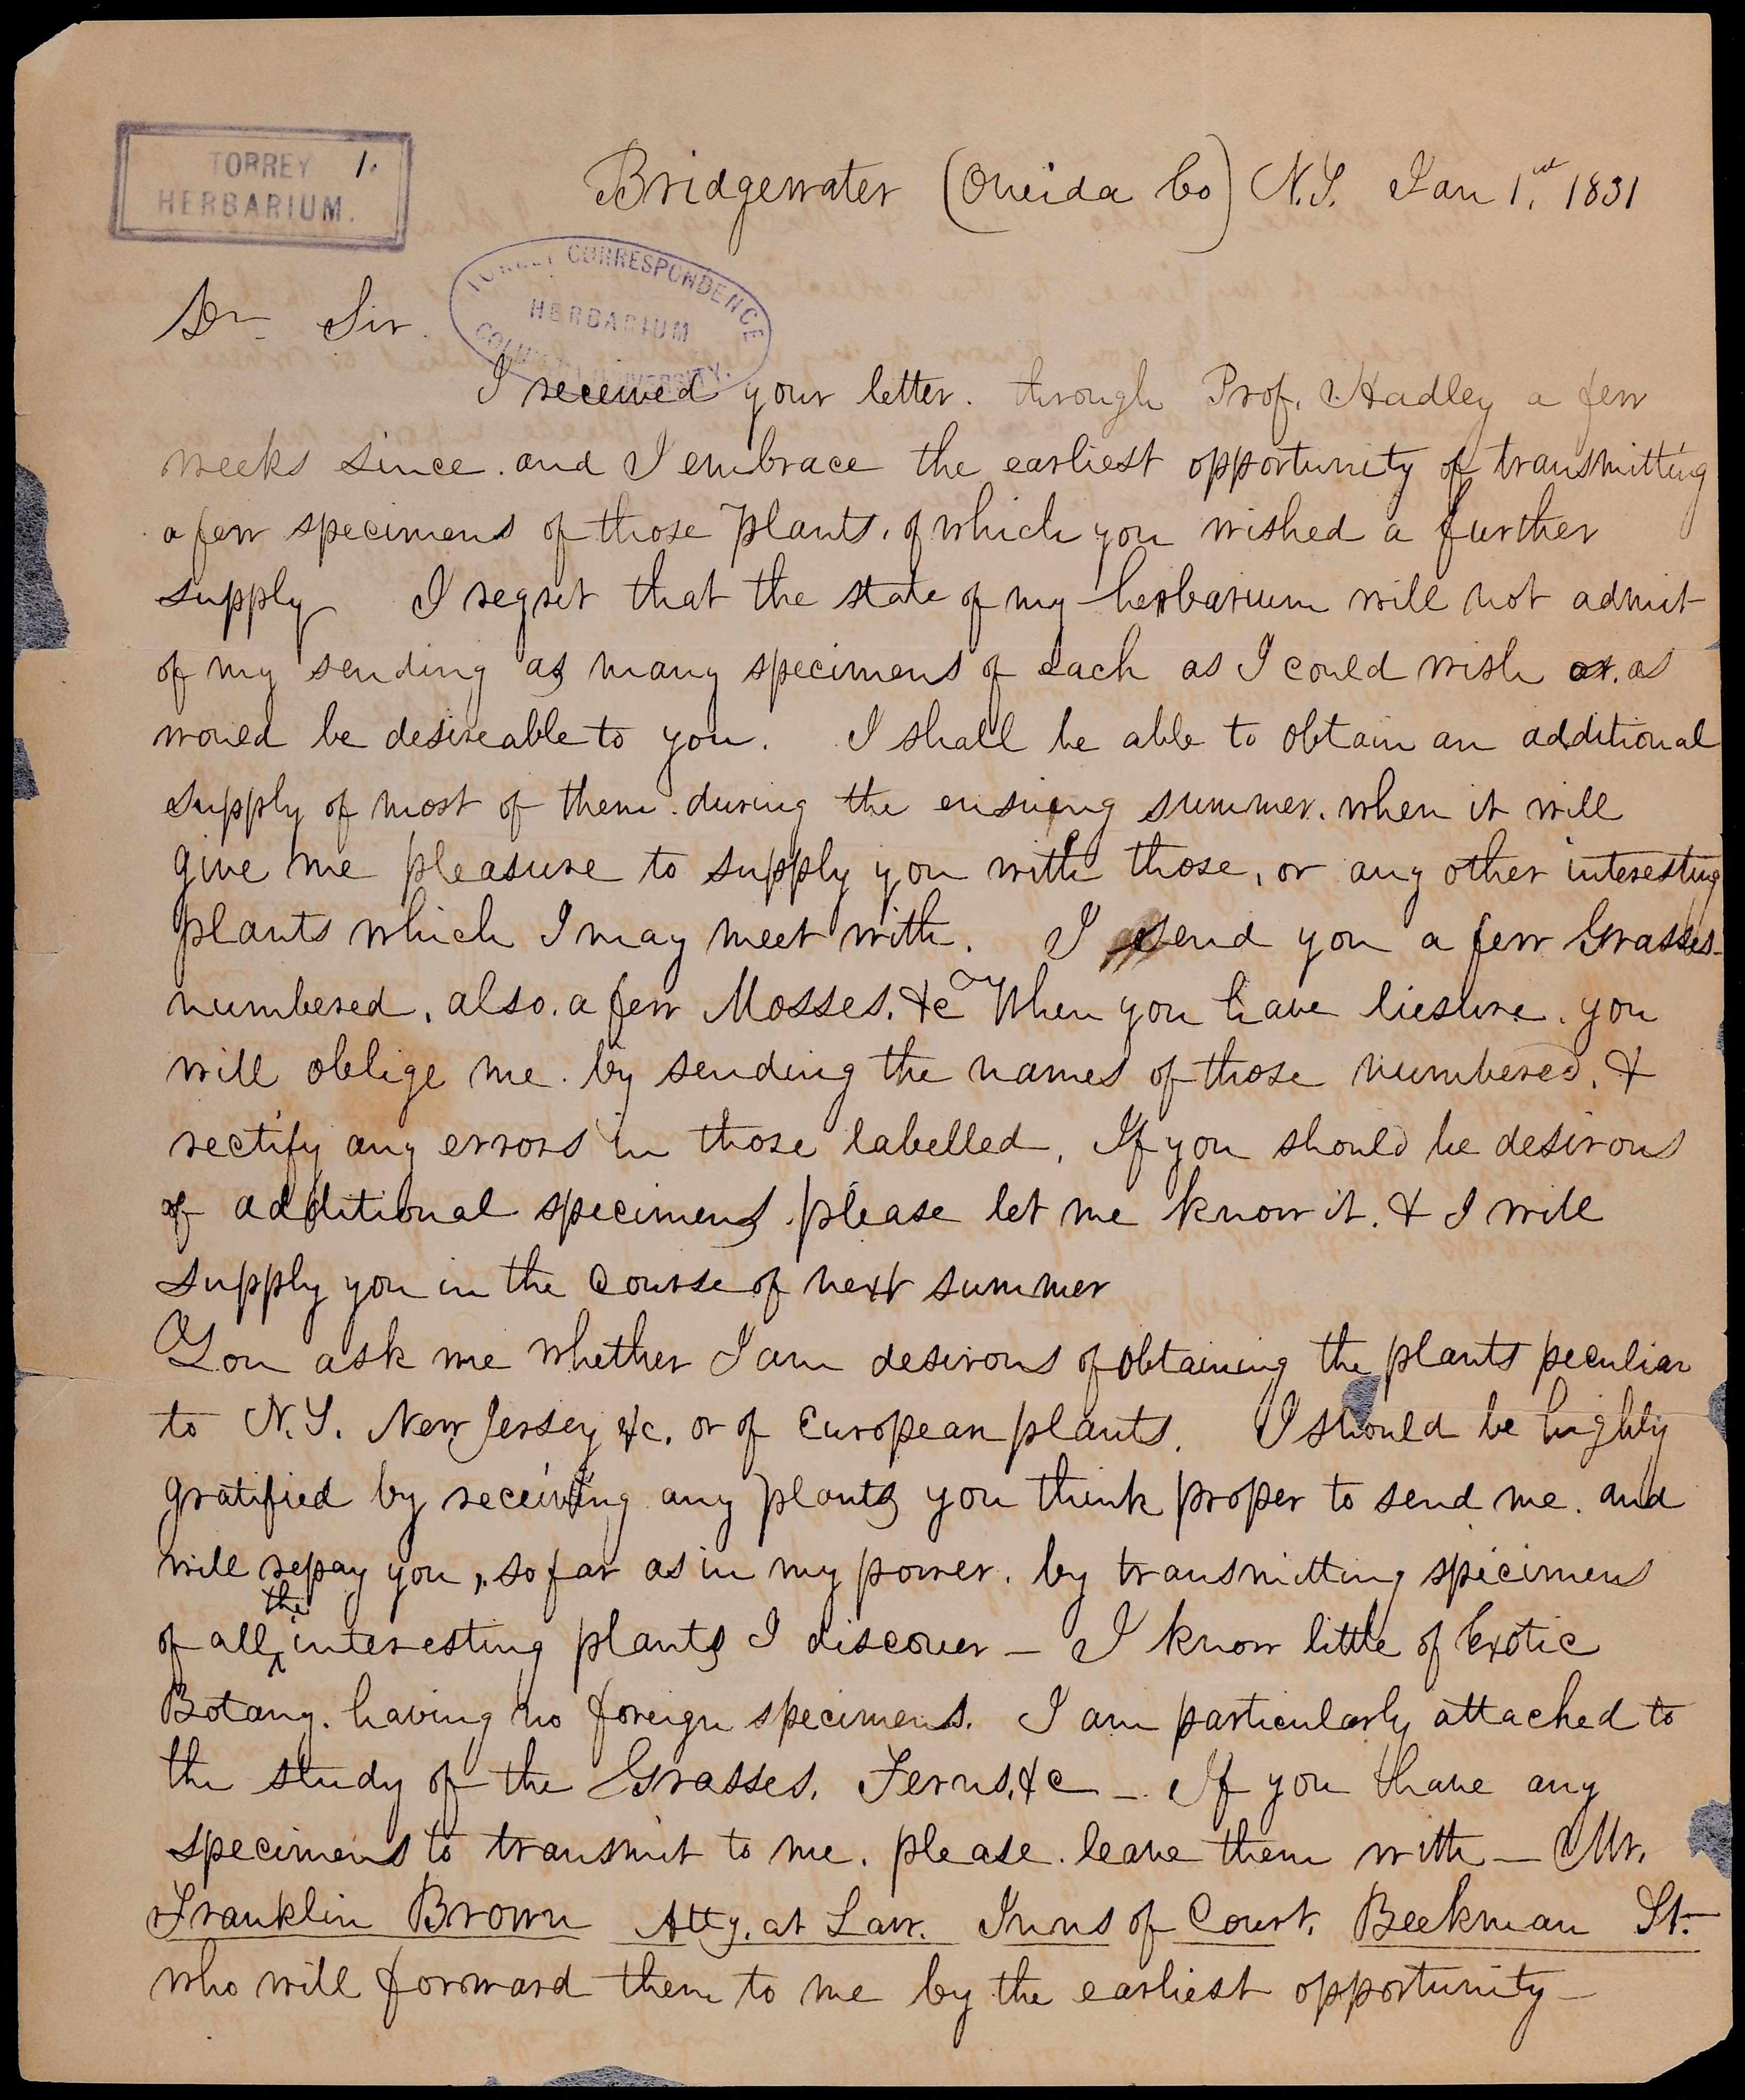 TORREY 1.
HERBARIUM.
Bridgewater (Oneida Co) N.Y. Jan 1.st 1831
TORREY CORRESPONDENCE
HERBARIUM
COLUMBIA UNIVERSITY.
Dr Sir.
I received your letter. through Prof. Hadley a few
weeks since. and I embrace the earliest opportunity of transmitting
a few specimens of those plants, of which you wished a further
supply I regret that the state of my herbarium will not admit
of my sending as many specimens of each as I could wish or. as
would be desireable to you. I shall be able to obtain an additional
supply of most of them. during the ensuing summer. when it will
give me pleasure to supply you with those, or any other interesting
plants which I may meet with. I send you a few Grasses
numbered, also. a few Mosses. &c When you have liesure. you
will oblige me. by sending the names of those numbered, &
rectify any errors in those labelled, If you should be desirous
of additional specimens please let me know it. & I will
supply you in the course of next summer
You ask me whether I am desirous of obtaining the plants peculiar
to N.Y. New Jersey &c. or of European plants. I should be highly
gratified by receiving any plants you think proper to send me. and
will repay you, so far as in my power. by transmitting specimens
of all the interesting plants I discover – I know little of Exotic
Botany. having no foreign specimens. I am particularly attached to
the study of the Grasses, Ferns, &c – If you have any
specimens to transmit to me. please. leave them with – Mr.
Franklin Brown Atty. at Law. Inns of Court, Beekman St.
who will forward them to me by the earliest opportunity –